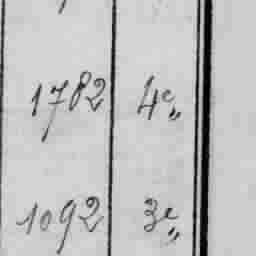 1782 4e„
1092 3e„